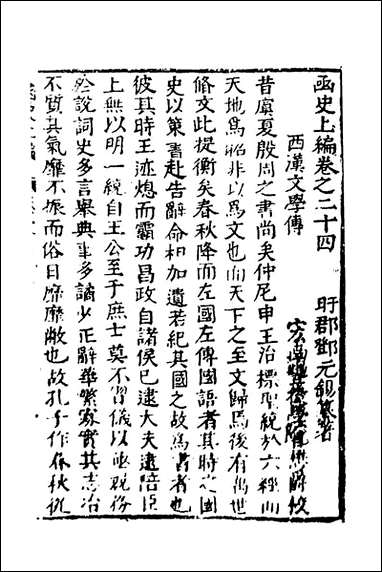 函史上編卷之二十四
盱郡鄧元錫纂著
西漢文學傳
昔虞夏殷周之書尚矣仲尼申王治標聖統於六經而
天地爲昭非以爲文也而天下之文歸焉後有萬世
脩文此提衡矣春秋降而左國左傳國語者其時之國
史以策書赴告辭命相加遺若紀其國之故爲書者也
彼其時王迹熄而霸功昌政自諸侯已逮大夫逮陪臣
上無以明一統自王公至于庶士莫不習儀以亟視俗
於說詞史多言舉典事多譎少正辭華繁寡實其志冶
不質其氣靡不振而俗日靡靡敝也故孔子作春秋從